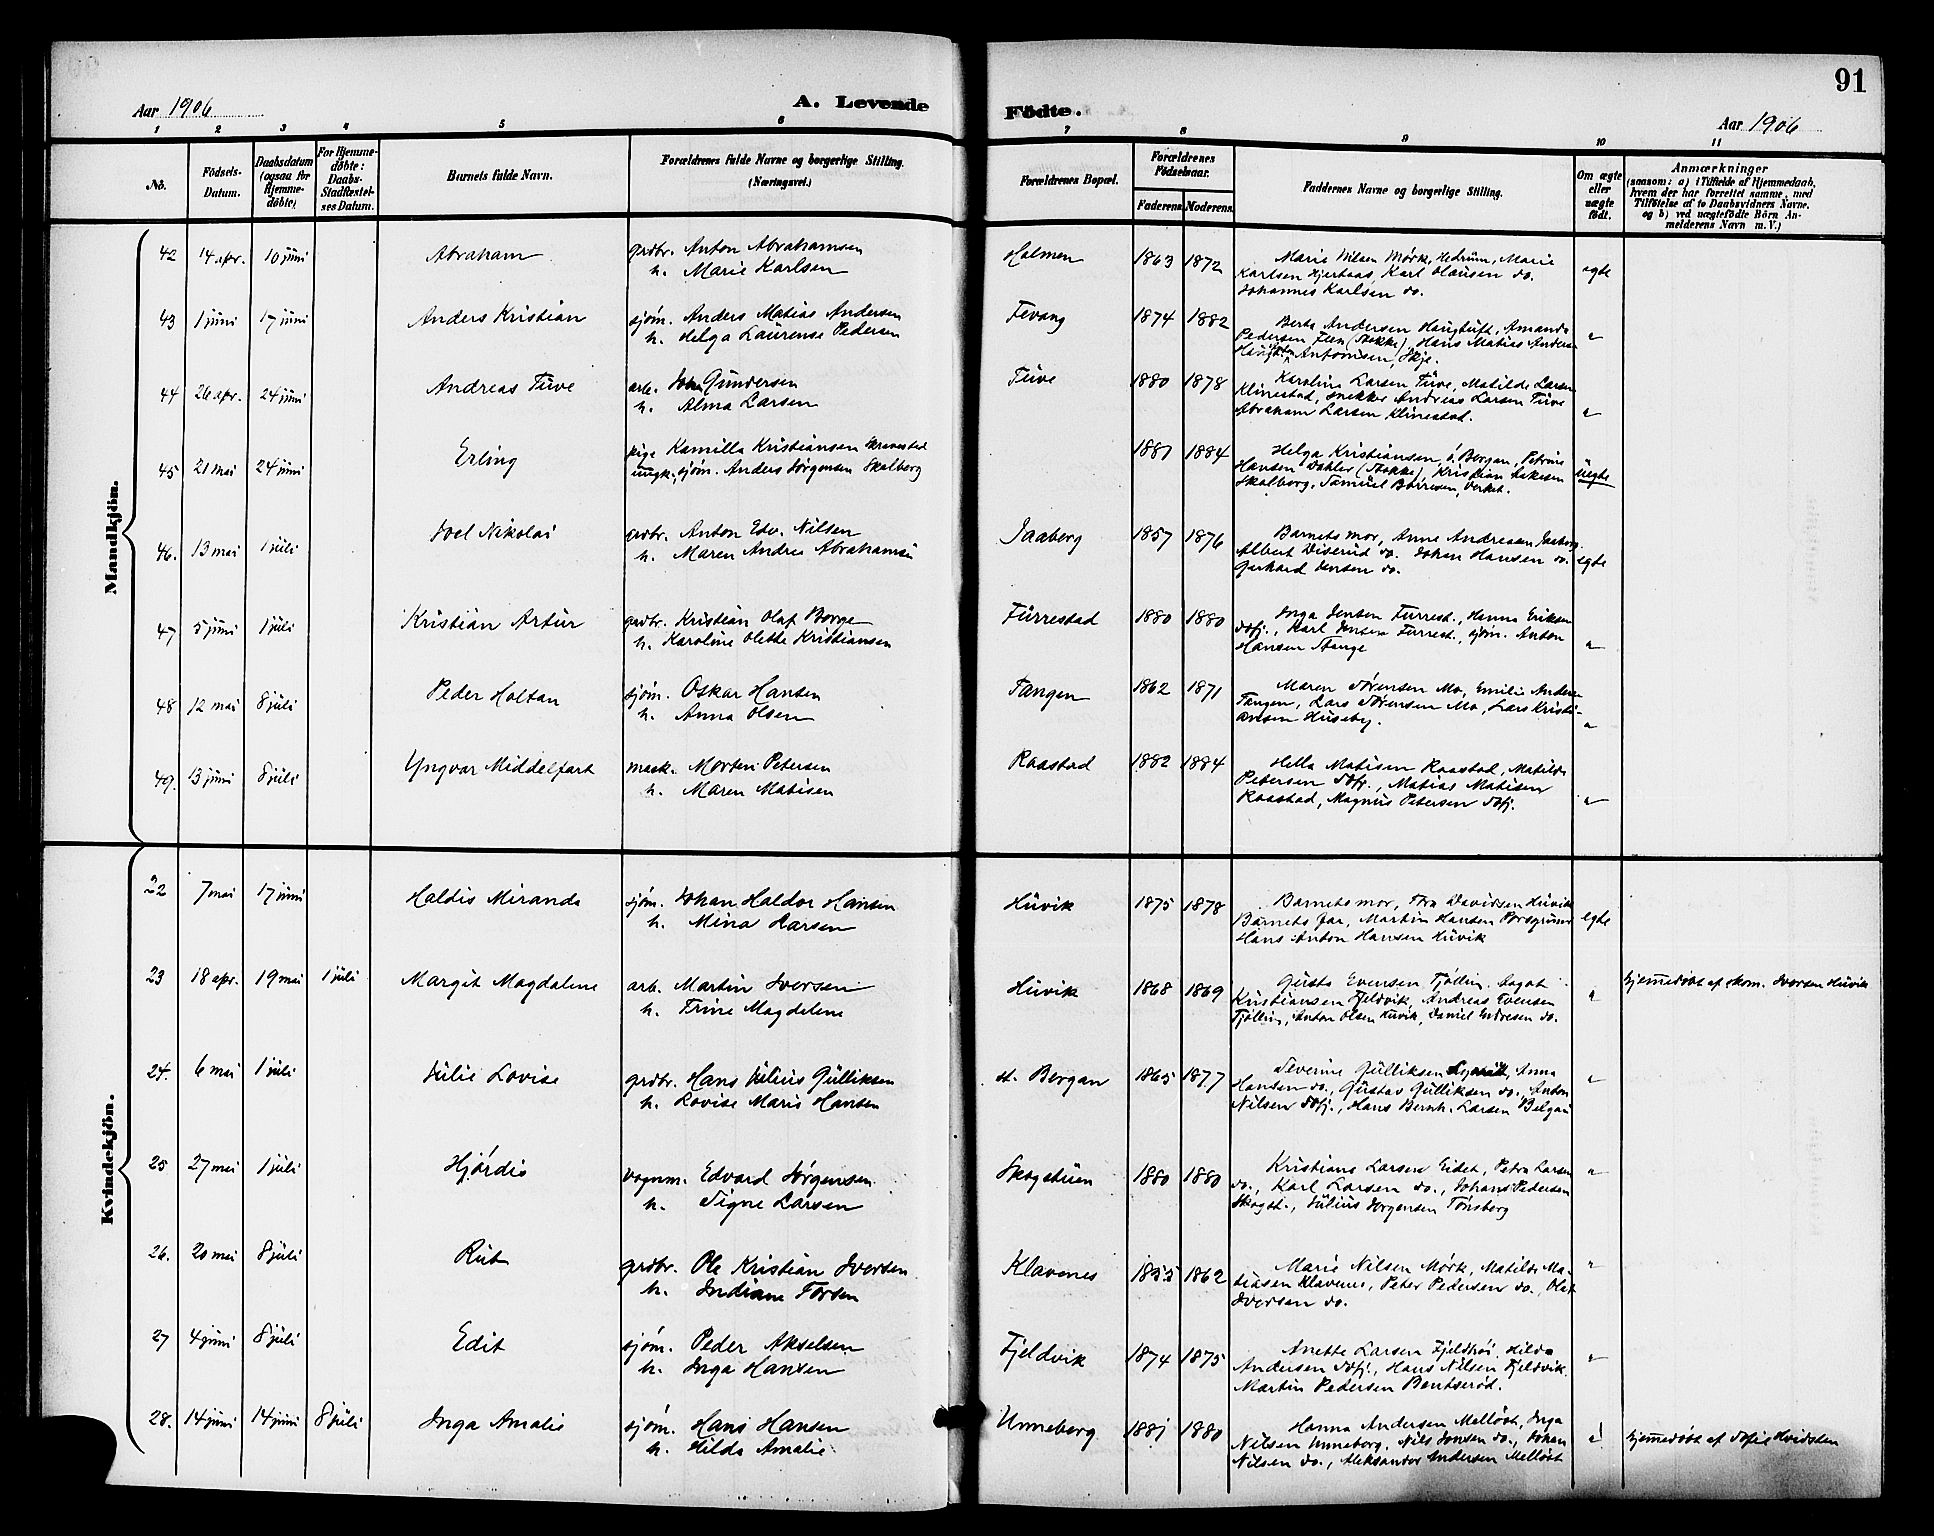 91
Aar 1906 A. Levende Födte. Aar 1906
1 2 3 4 5 6 7 8 9 10 11
No. Födsels-Datum. Daabsdatum (ogsaa for Hjemme-döbte) For Hjemme-döbte: Daabs-Stadfæstel-ses Datum. Barnets fulde Navn. Forældrenes fulde Navne og borgerlige Stilling. (Næringsvei.) Forældrenes Bopæl. Forældrenes Födselsaar. Faderens. Moderens. Faddernes Navne og borgerlige Stilling. Om ægte eller uægte födt. Anmærkninger (saasom: a) i Tilfælde af Hjemmedaab, hvem der har forrettet samme, med Tilföielse af to Daabsvidners Navne, og b) ved uægtefödte Börn An-melderens Navn m. V.)
Mandkjön.
42 14 apr. 10 juni Abraham grdbr. Anton Abrahamsen Holmen 1863 1872 Marie Nilsen Mørk, Hedrum, Marie
h. Marie Karlsen Karlsen Hjertaas, Karl Olausen do. egte
Johannes Karlsen do.
43 1 juni 17 juni Anders Kristian sjöm. Anders Matias Andersen Fevang 1874 1882 Berta Andersen Haugtuft, Amanda
h. Helga Laurense Pedersen Pedersen Feen (Stokke), Hans Matias Anders "
Antonisen, Skje.
44 26 apr. 24 juni Andreas Tuve arb. Johan Gundersen Tuve 1880 1878 Karoline Larsen Tuve, Matilde Larsen
h. Alma Larsen Klinestad, snekker Andreas Larsen Tuve
Abraham Larsen Klinestad. "
45 21 mai 24 juni Erling pige Kamilla Kristiansen Skravestad 1881 1884 Helga Kristiansen ö. Bergan, Petrine
ungk., sjöm. Anders Jörgensen Skalberg Hansen Dahler (Stokke), Kristian uegte
Skalberg, Samuel Börresen, Verket.
46. 13 mai 1 juli Joel Nikolai grdbr. Anton Edv. Nilsen Jaaberg 1857 1876 Barnets mor, Anne Andreasen Jaaberg.
h. Maren Andrea Abrahamsen Albert Viserud do. Johan Hansen do. egte
Gerhard Jensen do.
47 5 juni 1 juli Kristian Artur grdbr. Kristian Olaf Borge Furrestad 1880 1880 Inga Jensen Furrest., Hanna Eriksen
h. Karoline Olette Kristiansen Sdfj., Karl Jensen Furrest., sjöm. Anton
Hansen Stange "
48 12 mai 8 juli Peder Holtan sjöm. Oskar Hansen Tangen 1862 1871 Maren Sörensen Mo, Emilie Andersen
h. Anna Olsen Tangen, Lars Sörensen Mo, Lars Kristi-
ansen Huseby. "
49. 13 juni 8 juli Yngvar Middelfart mask. Morten Petersen Raastad 1882 1884 Hella Matisen Raastad, Matilde
h. Maren Matisen Petersen Sdfj., Matias Matisen
Raastad, Magnus Petersen Sdfj. "
Kvindekjön.
22 7 mai 17 juni Haldis Miranda sjöm. Johan Haldor Hansen Huvik 1875 1878 Barnets mor, Tora Davidsen Huvik
h. Mina Larsen Barnets far, Martin Hansen Porsgrund egte
Hans Anton Hansen Huvik
23 18 apr. 19 mai 1 juli Margit Magdalene arb. Martin Iversen Huvik 1868 1869 Gusta Evensen Tjölling, Aagot hjemmedöbt af skom. Iversen Huvik
h. Trine Magdalene Kristiansen Fjeldvik, Andreas Evensen "
Tjölling, Anton Olsen Huvik, Daniel Endresen do.
24. 6 mai 1 juli Julie Lovise grdbr. Hans Julius Gulliksen st. Bergan 1865 1877 Severine Gulliksen, Anna "
h. Lovise Marie Hansen Hansen do., Gustav Gulliksen do., Anton
Nilsen Sdfj., Hans Bernh. Larsen Belgau
25 27 mai 1 juli Hjördis vognm. Edvard Jörgensen Skogstuen 1880 1880 Kristiane Larsen Eidet, Petra Larsen "
h. Signe Larsen do., Karl Larsen do., Johans Pedersen
Skogst., Julius Jorgensen Tönsberg
26. 20 mai 8 juli Rut grdbr. Ole Kristian Iversen Klavenes 1855 1862 Marie Nilsen Mørk, Matilde Ma- "
h. Indiane Torsen tiasen Klavenes, Peter Pedersen do., Olaf
Iversen do.
27 4 juni 8 juli Edit sjöm. Peder Akselsen Fjeldvik 1874 1875 Anette Larsen, Hilda
h. Inga Hansen Andersen Sdfj., Hans Nilsen Fjeldvik, "
Martin Pedersen Bentseröd.
28. 14 juni 14 juni 8 juli Inga Amalie sjöm. Hans Hansen Unneberg 1881 1880 Hanna Andersen Mellöst, Inga
h. Hilda Amalie Nilsen Unneberg, Nils Jensen do., Johan " hjemmedöbt af Sofie Hvidsten
Nilsen do., Aleksander Andersen Mellöst